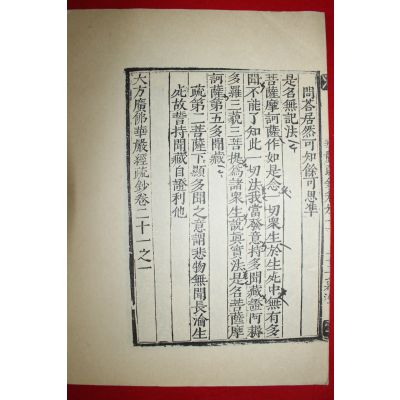 問答居然可知餘可思準
是名無記法
菩薩摩訶薩作如是念一切衆生於生死中無有多
聞不能了知此一切法我當發意持多聞藏證阿耨
多羅三藐三菩提爲諸衆生說眞實法是名菩薩摩
訶薩第五多聞藏
疏第二菩薩下顯多聞之意謂悲物無聞長淪生
死故誓持聞藏自證利他
大方廣佛華嚴經疏鈔卷二十一之一